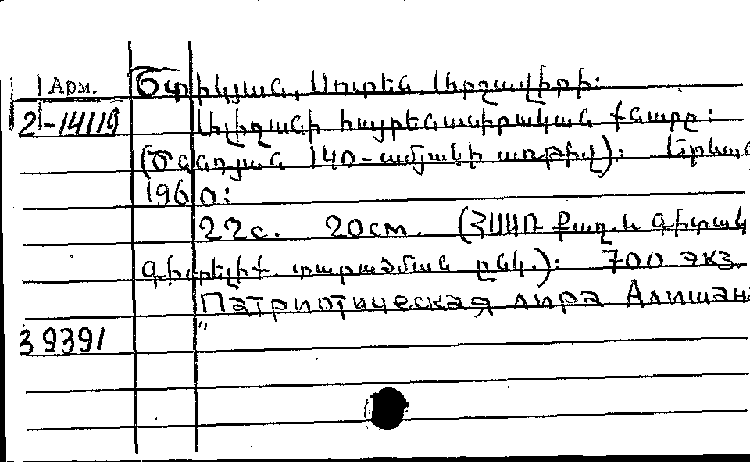 Арм. Ծտիկյան, Սուրեն Արշավիրի:
2-14119 Ալիշանի հայրենասիրական քնարը:
(Ծննդյան 140-ամյակի առթիվ): Երևան
1960:
22с. 20см. (ՀՍՍՌ քաղ. և գիտակ
գիտելիք. տարածման ընկ.): 700 экз.
"Патриотическая лира Алишан
39391